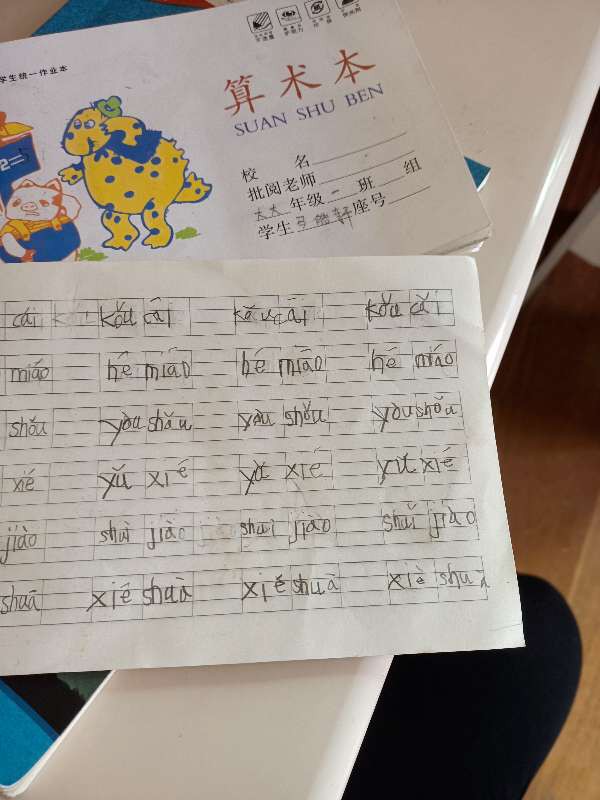 学生统一作业本
算术本
SUAN SHU BEN
校 名
批阅老师
大大 年级 一 班 组
学生 座号
cái kǒu cái kǒu cái kǒu cái
miáo hé miáo hé miáo hé miáo
shǒu yòu shǒu yòu shǒu yòu shǒu
xié yǔ xié yǔ xié yǔ xié
jiào shuì jiào shuì jiào shuì jiào
shuā xié shuā xié shuā xiè shuā